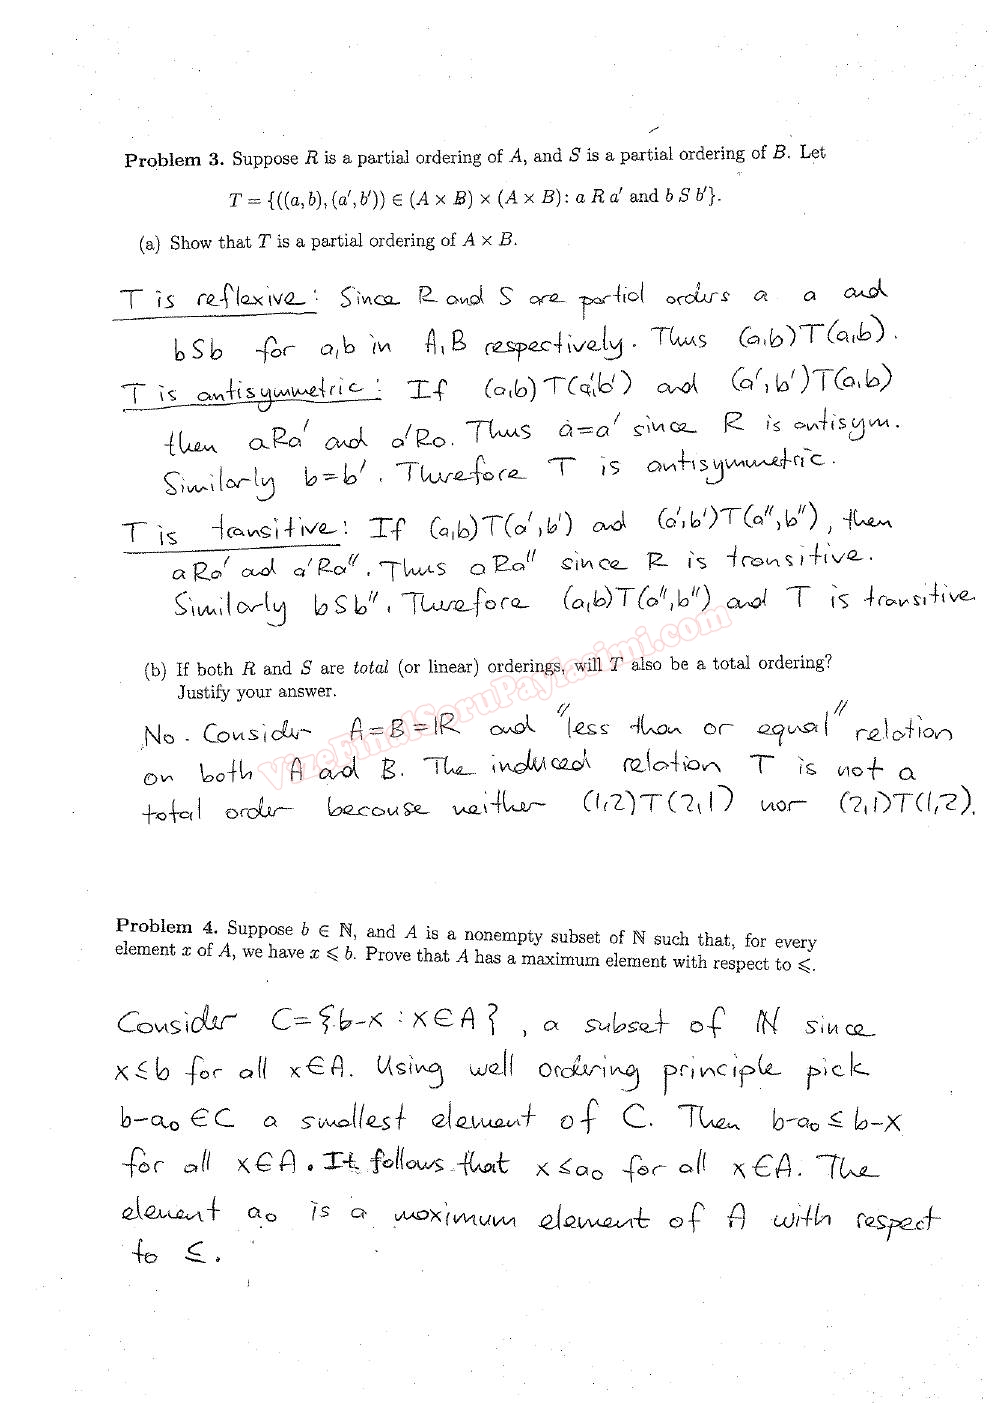 Problem 3. Suppose R is a partial ordering of A, and S is a partial ordering of B. Let
T = {((a, b), (a′, b′)) ∈ (A × B) × (A × B): a R a′ and b S b′}.
(a) Show that T is a partial ordering of A × B.
T is reflexive: Since R and S are partial orders a a and
bSb for a,b in A,B respectively. Thus (a,b)T(a,b).
T is antisymmetric: If (a,b)T(a′,b′) and (a′,b′)T(a,b)
then aRa′ and a′Ra. Thus a=a′ since R is antisym.
Similarly b=b′. Therefore T is antisymmetric.
T is transitive: If (a,b)T(a′,b′) and (a′,b′)T(a″,b″), then
aRa′ and a′Ra″. Thus aRa″ since R is transitive.
Similarly bSb″. Therefore (a,b)T(a″,b″) and T is transitive
(b) If both R and S are total (or linear) orderings, will T also be a total ordering?
Justify your answer.
No. Consider A=B=ℝ and "less than or equal" relation
on both A and B. The induced relation T is not a
total order because neither (1,2)T(2,1) nor (2,1)T(1,2).
VizeFinalSoruPaylasimi.com
Problem 4. Suppose b ∈ ℕ, and A is a nonempty subset of ℕ such that, for every
element x of A, we have x ⩽ b. Prove that A has a maximum element with respect to ⩽.
Consider C={b-x : x∈A}, a subset of ℕ since
x≤b for all x∈A. Using well ordering principle pick
b-a₀∈C a smallest element of C. Then b-a₀≤b-x
for all x∈A. It follows that x≤a₀ for all x∈A. The
element a₀ is a maximum element of A with respect
to ≤.